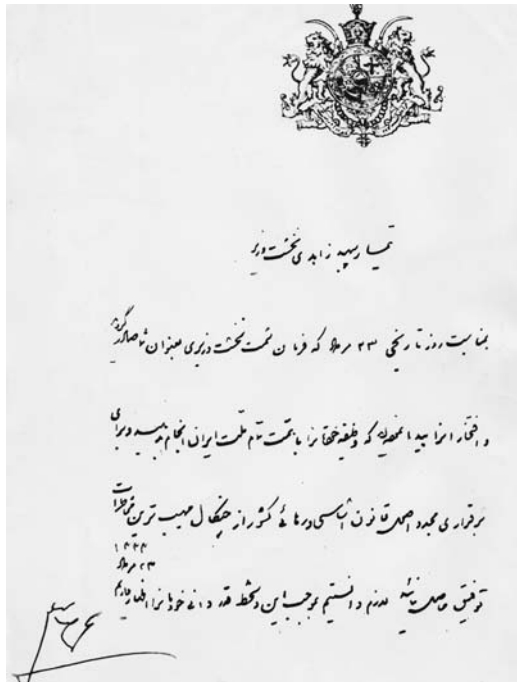 تیمسار سپهبد زاهدی نخست وزیر
بمناسبت روز تاریخی ۲۳ مرداد که فرمان سمت نخست وزیری بعنوان شما صادر گردید
و افتخار آنرا پیدا نموده‌اید که وظیفه خطیر را با همت تمام ملت ایران انجام و برای
برقراری مجدد اصول قانون اساسی و رهائی کشور از چنگال مهیب ترین
توفیق حاصل نمائید لازم دانستیم بموجب این دستخط قدردانی خود را اظهار داریم
۲۳ مرداد